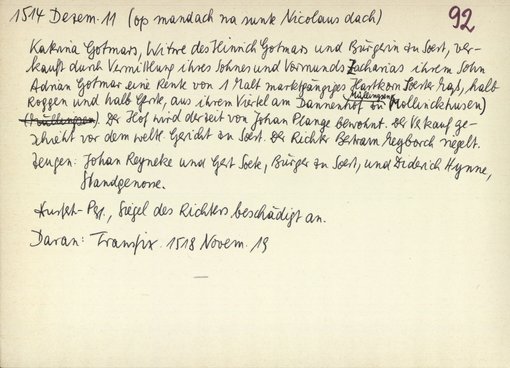 1514 Dezem. 11 (op mandach na sunte Nicolaus dach)
92
Katrina Gotmars, Witwe des Hinrich Gotmars und Bürgerin zu Soest, ver-
kauft durch Vermittlung ihres Sohnes und Vormunds Zacharias ihrem Sohn
Adrian Gotmar eine Rente von 1 Malt marktgängiges Hartkorn Soester Maß, halb
Roggen und halb Gerste, aus ihrem Viertel am Dannenhof zu Mollinckhusen)
(Müllingsen). Der Hof wird derzeit von Johan Plange bewohnt. Der Verkauf ge-
schieht vor dem weltl. Gericht zu Soest. Der Richter Bertram Meyborch siegelt.
Zeugen: Johan Reyneke und Gert Soek, Bürger zu Soest, und Diderich Hynne,
Standgenosse.
Ausf.-Pgt., Siegel des Richters beschädigt an.
Daran: Transfix. 1518 Novem. 19